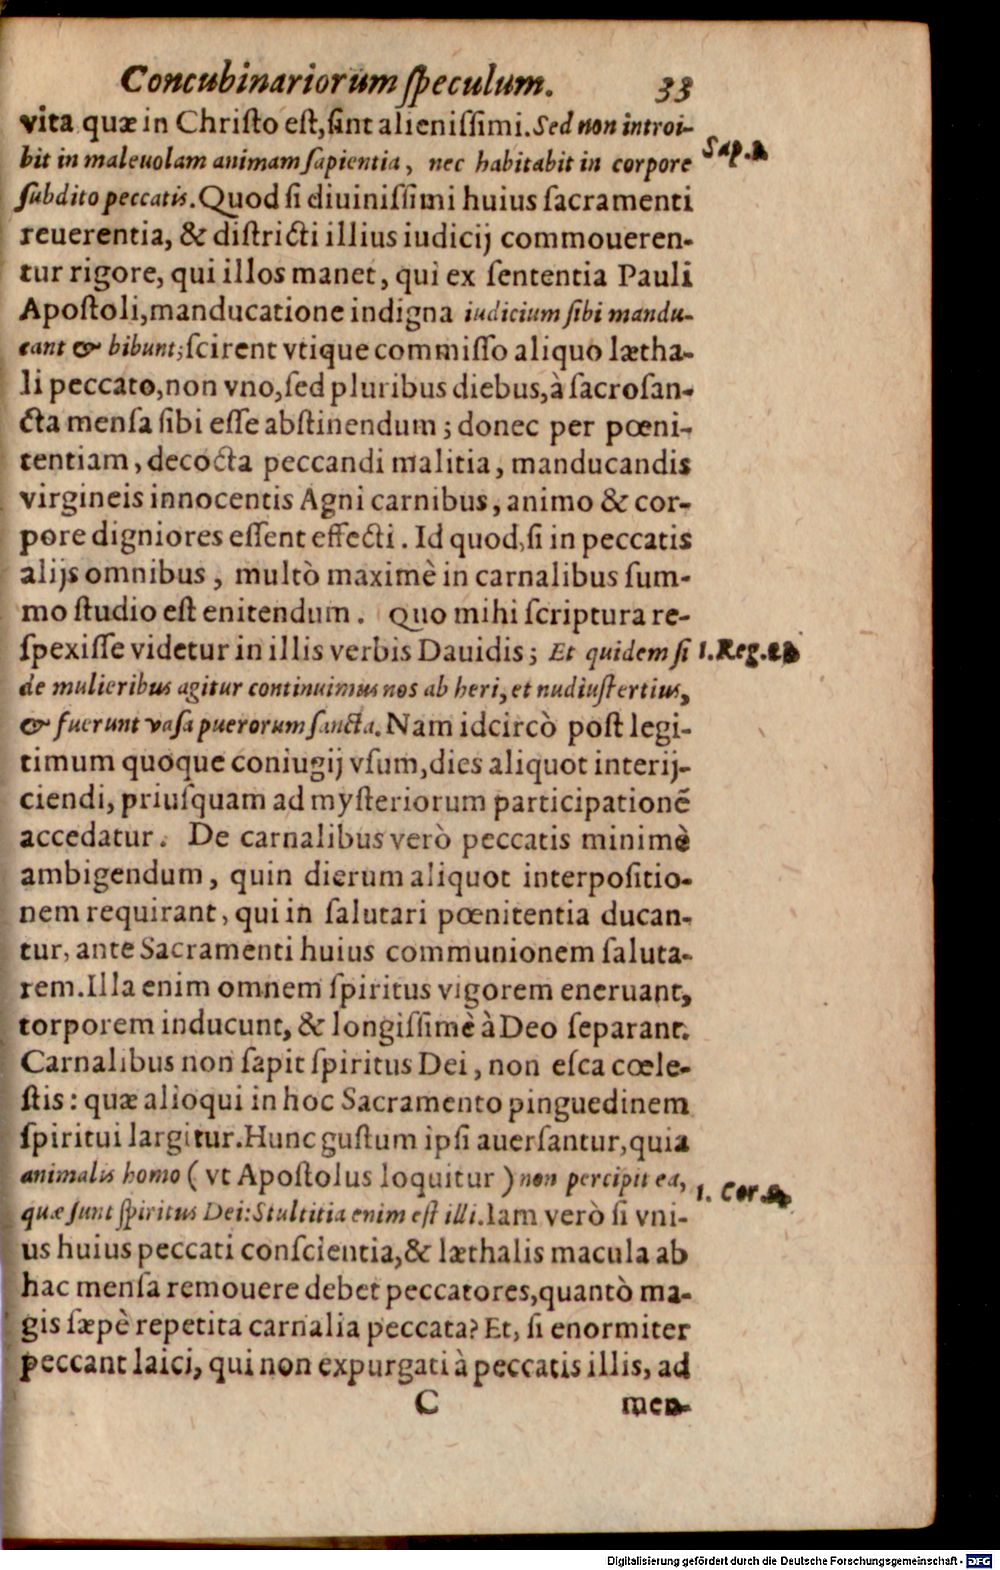 Concubinariorum ſpeculum. 33
vita quæ in Chriſto eſt, ſint alieniſſimi. Sed non introi-
bit in maleuolam animam ſapientia, nec habitabit in corpore Sap.
ſubdito peccatis. Quod ſi diuiniſſimi huius ſacramenti
reuerentia, & diſtricti illius iudicij commoueren-
tur rigore, qui illos manet, qui ex ſententia Pauli
Apoſtoli, manducatione indigna iudicium ſibi mandu-
cant & bibunt; ſcirent vtique commiſſo aliquo lætha-
li peccato, non vno, ſed pluribus diebus, à ſacroſan-
cta menſa ſibi eſſe abſtinendum; donec per pœni-
tentiam, decocta peccandi malitia, manducandis
virgineis innocentis Agni carnibus, animo & cor-
pore digniores eſſent effecti. Id quod, ſi in peccatis
alijs omnibus, multò maximè in carnalibus ſum-
mo ſtudio eſt enitendum. Quo mihi ſcriptura re-
ſpexiſſe videtur in illis verbis Dauidis; Et quidem ſi 1. Reg.
de mulieribus agitur continuimus nos ab heri, et nudiuſtertius,
& fuerunt vaſa puerorum ſancta. Nam idcircò poſt legi-
timum quoque coniugij vſum, dies aliquot interij-
ciendi, priuſquam ad myſteriorum participationē
accedatur. De carnalibus verò peccatis minimè
ambigendum, quin dierum aliquot interpoſitio-
nem requirant, qui in ſalutari pœnitentia ducan-
tur, ante Sacramenti huius communionem ſaluta-
rem. Illa enim omnem ſpiritus vigorem eneruant,
torporem inducunt, & longiſſimè à Deo ſeparant.
Carnalibus non ſapit ſpiritus Dei, non eſca cœle-
ſtis: quæ alioqui in hoc Sacramento pinguedinem
ſpiritui largitur. Hunc guſtum ipſi auerſantur, quia
animalis homo (vt Apoſtolus loquitur) non percipit ea, 1. Cor.
quæ ſunt ſpiritus Dei: Stultitia enim eſt illi. Iam verò ſi vni-
us huius peccati conſcientia, & læthalis macula ab
hac menſa remouere debet peccatores, quantò ma-
gis ſæpè repetita carnalia peccata? Et, ſi enormiter
peccant laici, qui non expurgati à peccatis illis, ad
C men-
Digitalisierung gefördert durch die Deutsche Forschungsgemeinschaft - DFG